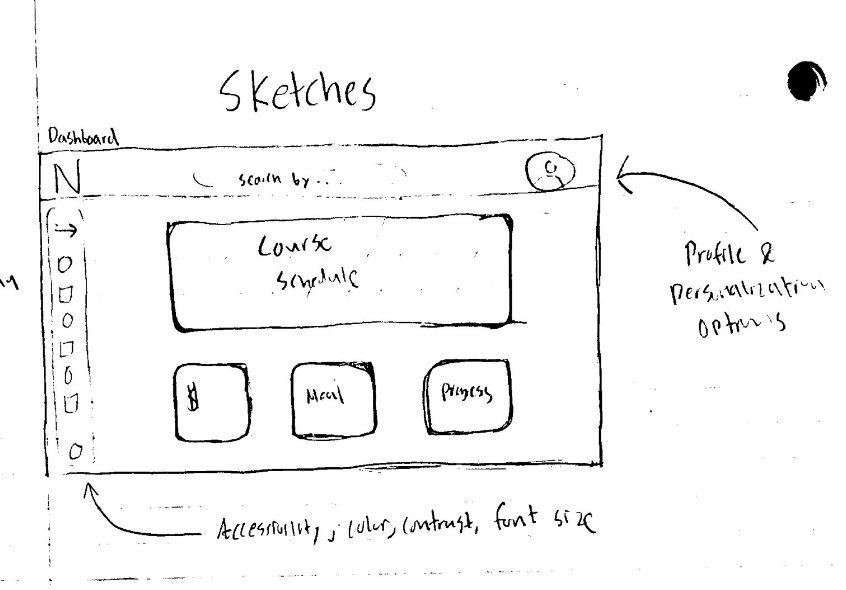 Sketches
Dashboard
N
search by...
Course
Schedule
$
Mail
Progress
Profile &
Personalization
options
Accessibility, color, contrast, font size